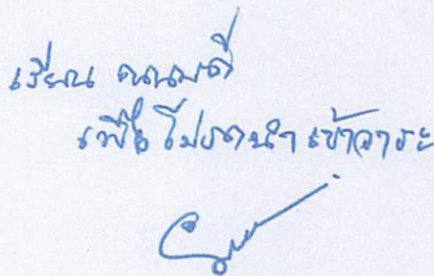 เรียน คณบดี
เพื่อโปรดนำเข้าวาระ